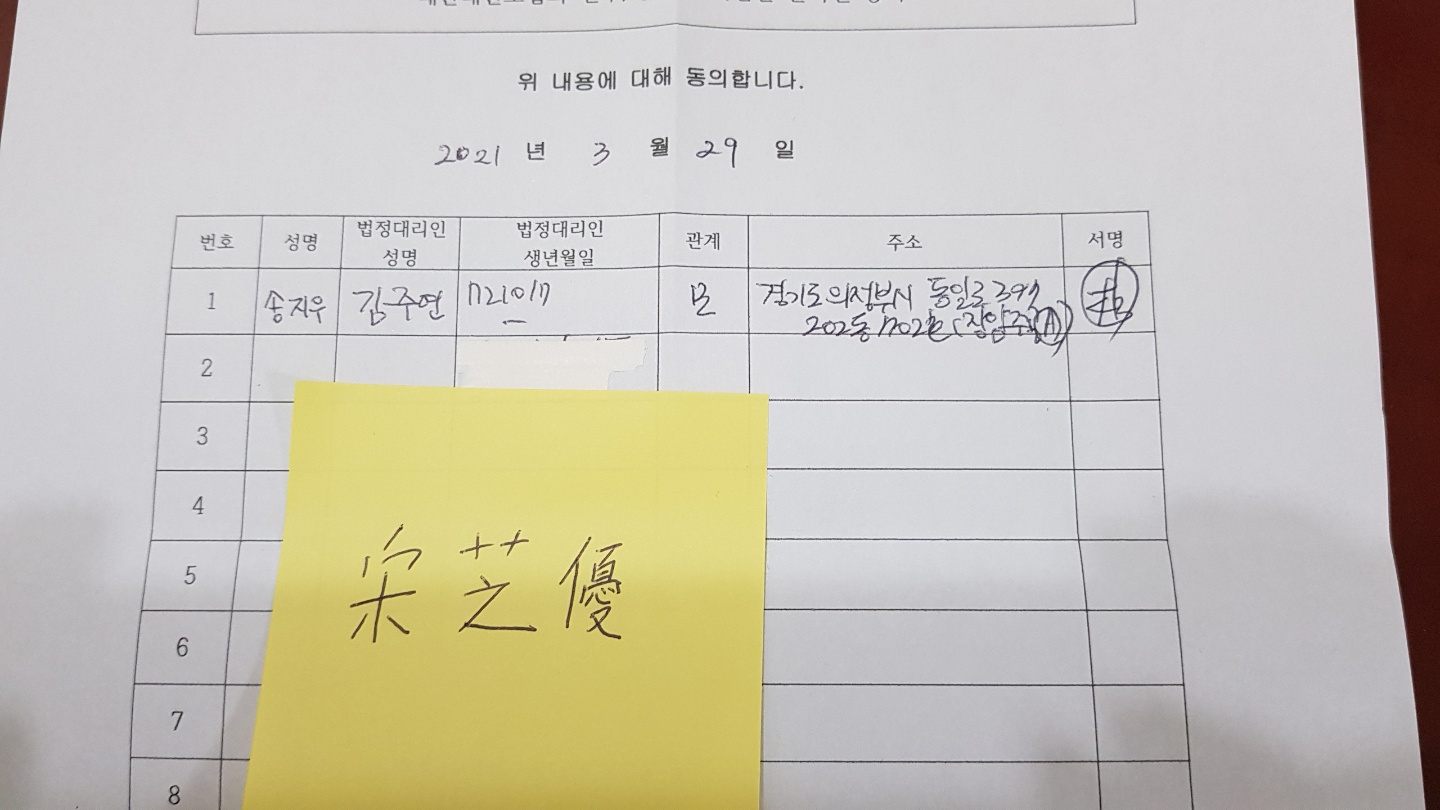 위 내용에 대해 동의합니다.
2021 년 3 월 29 일
번호 성명 법정대리인 성명 법정대리인 생년월일 관계 주소 서명
1 송지우 김주연 721017 모 경기도 의정부시 동일로
202동 1702호
2
3
4
5
6
7
8
宋芝優